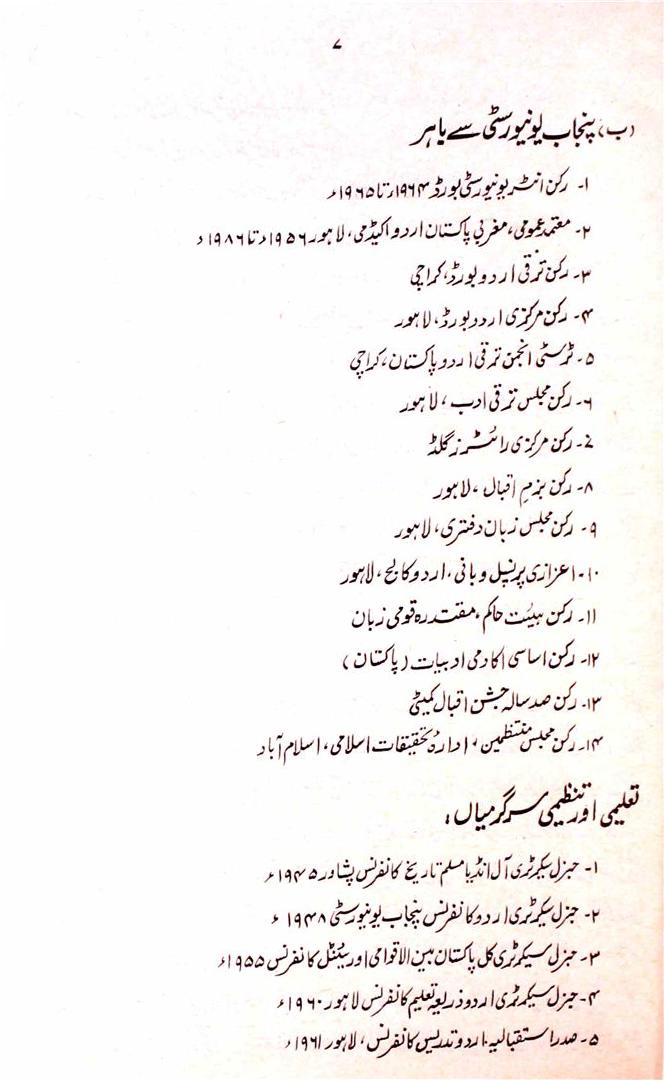 ۷
(ب) پنجاب یونیورسٹی سے باہر
۱۔ رکن انٹر یونیورسٹی بورڈ ۱۹۶۴ء تا ۱۹۶۵ء
۲۔ معتمد عمومی، مغربی پاکستان اردو اکیڈمی، لاہور ۱۹۵۶ء تا ۱۹۸۶ء
۳۔ رکن ترقی اردو بورڈ، کراچی
۴۔ رکن مرکزی اردو بورڈ، لاہور
۵۔ ٹرسٹی انجمن ترقی اردو پاکستان، کراچی
۶۔ رکن مجلس ترقی ادب، لاہور
۷۔ رکن مرکزی رائٹرز گلڈ
۸۔ رکن بزمِ اقبال، لاہور
۹۔ رکن مجلس زبان دفتری، لاہور
۱۰۔ اعزازی پرنسپل و بانی، اردو کالج، لاہور
۱۱۔ رکن ہیئت حاکمہ، مقتدرہ قومی زبان
۱۲۔ رکن اساسی اکادمی ادبیات (پاکستان)
۱۳۔ رکن صد سالہ جشن اقبال کمیٹی
۱۴۔ رکن مجلس منتظمین، ادارۂ تحقیقات اسلامی، اسلام آباد
تعلیمی اور تنظیمی سرگرمیاں:
۱۔ جنرل سیکرٹری آل انڈیا مسلم تاریخ کانفرنس پشاور ۱۹۴۵ء
۲۔ جنرل سیکرٹری اردو کانفرنس پنجاب یونیورسٹی ۱۹۴۸ء
۳۔ جنرل سیکرٹری کل پاکستان بین الاقوامی اورینٹل کانفرنس ۱۹۵۵ء
۴۔ جنرل سیکرٹری اردو ذریعہ تعلیم کانفرنس لاہور ۱۹۶۰ء
۵۔ صدر استقبالیہ اردو تدریس کانفرنس، لاہور ۱۹۶۱ء